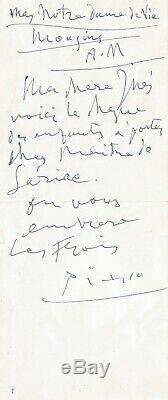 Mas Notre Dame de Vie
Mougins
A.M
Ma chere Inés
voici le chèque
des enfants à porter
chez Maitre de
Sariac.
on vous
embrasse
Les Trois
Picasso